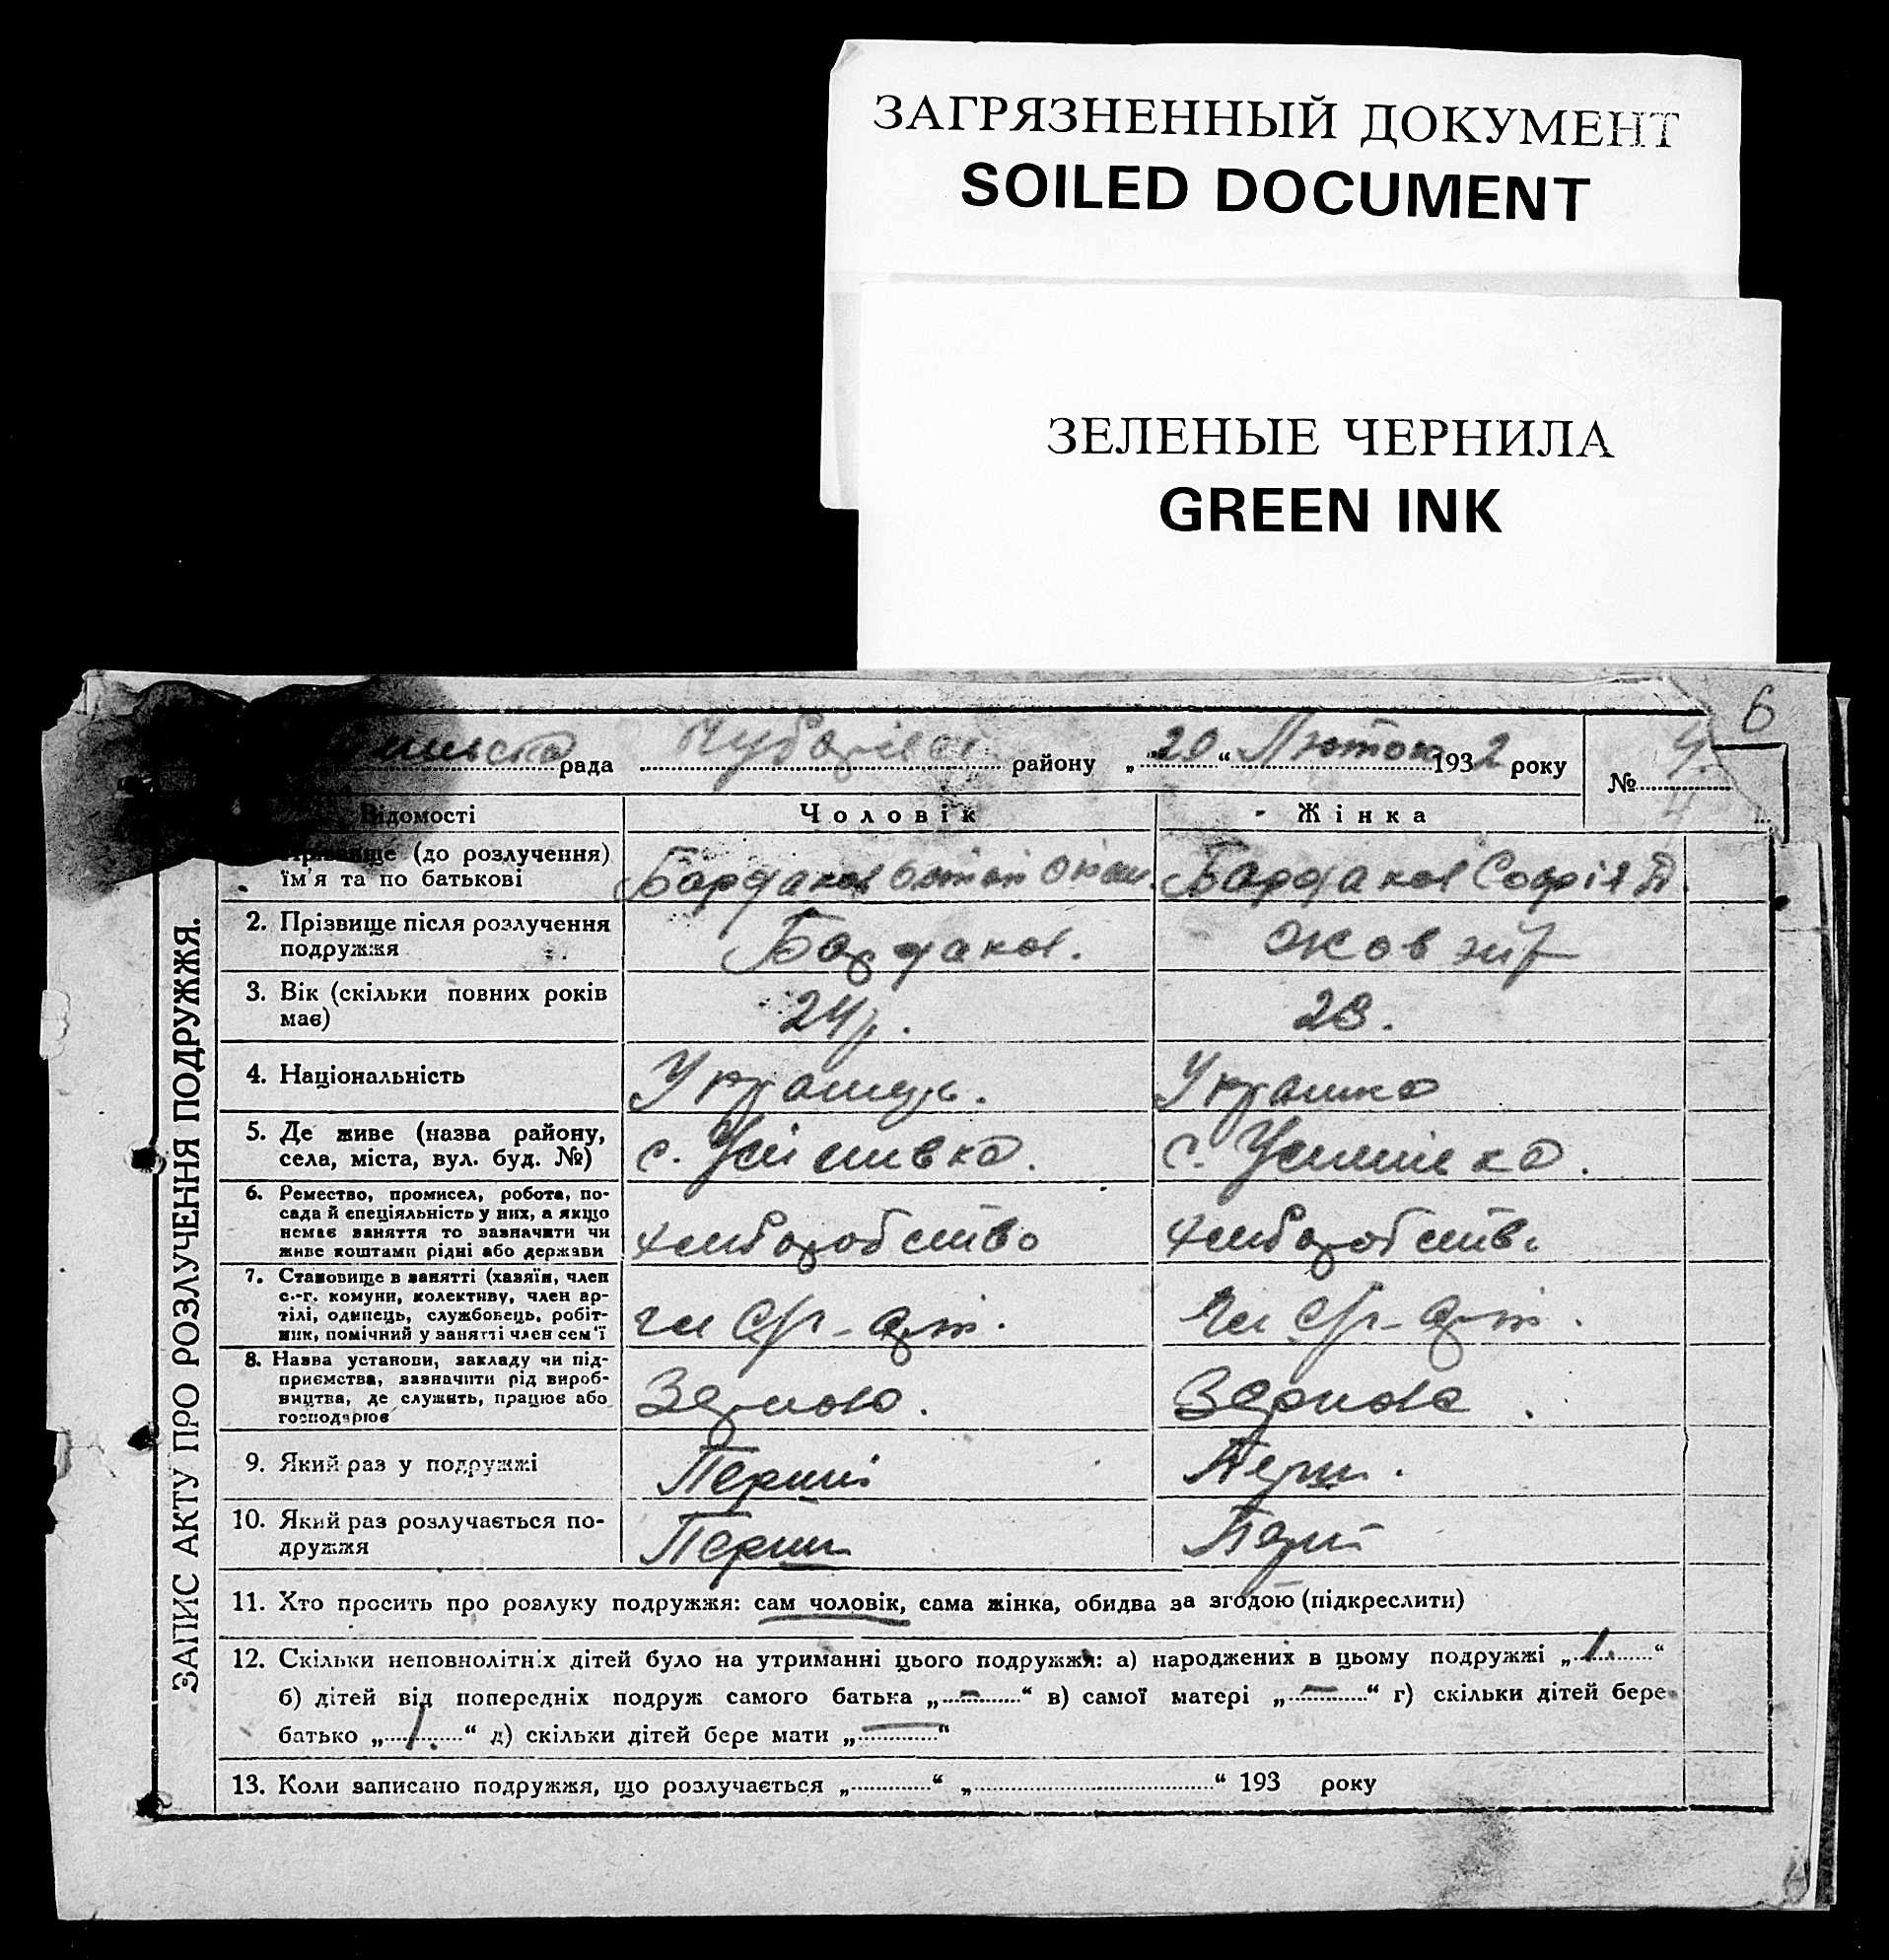 ЗАГРЯЗНЕННЫЙ ДОКУМЕНТ
SOILED DOCUMENT
ЗЕЛЕНЫЕ ЧЕРНИЛА
GREEN INK
6
рада району „20“ Лютого 1932 року № 4
Відомості Чоловік Жінка
Прізвище (до розлучення)
їм'я та по батькові
Софія
2. Прізвище після розлучення
подружжя
3. Вік (скільки повних років
має)
24р. 23.
4. Національність
Українець. Українка
5. Де живе (назва району,
села, міста, вул. буд. №)
с. с.
6. Ремество, промисел, робота, по-
сада й спеціяльність у них, а якщо
немає заняття то зазначити чи
живе коштами рідні або держави
хліборобство хліборобство
7. Становище в занятті (хазяїн, член
с.-г. комуни, колективу, член ар-
тілі, одинець, службовець, робіт-
ник, помічний у занятті член сем'ї
8. Назва установи, закладу чи під-
приємства, зазначити рід вироб-
ництва, де служить, працює або
господарює
9. Який раз у подружжі
Перший Перш.
10. Який раз розлучається по-
дружжя
Перш Перш
11. Хто просить про розлуку подружжя: сам чоловік, сама жінка, обидва за згодою (підкреслити)
12. Скільки неповнолітніх дітей було на утриманні цього подружжя: а) народжених в цьому подружжі „1.“
б) дітей від попередніх подруж самого батька „–“ в) самої матері „–“ г) скільки дітей бере
батько „1.“ д) скільки дітей бере мати „—“
13. Коли записано подружжя, що розлучається „ “ „ “ 193 року
ЗАПИС АКТУ ПРО РОЗЛУЧЕННЯ ПОДРУЖЖЯ.